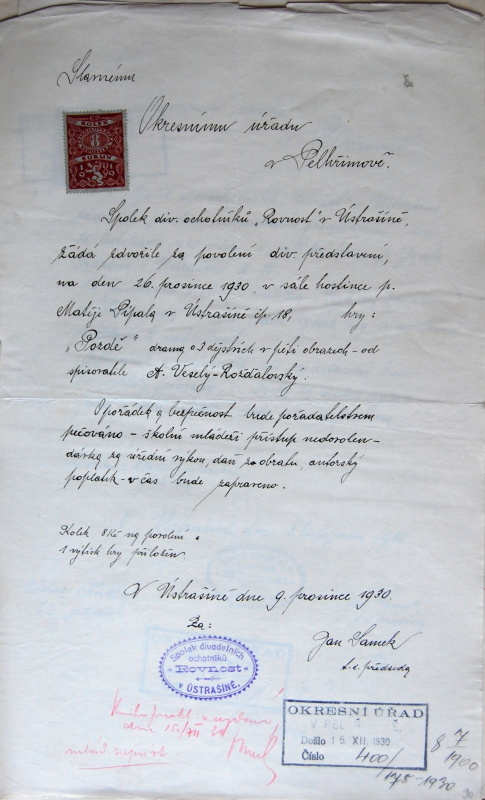 Slavnému
Okresnímu úřadu
v Pelhřimově.
KOLEK
8
KORUN
Spolek div. ochotníků „Rovnost" v Ústrašíně,
žádá zdvořile za povolení div. představení,
na den 26. prosince 1930, v sále hostince p.
Matěje Pípala v Ústrašíně čp. 18, hry:
„Pozdě" drama o 3 dějstvích v pěti obrazech – od
spisovatele A. Veselý-Rožďalovský.
O pořádek a bezpečnost bude pořadatelstvem
pečováno – školní mládeži přístup nedovolen –
dávka za úřední výkon, daň z obratu, autorský
poplatek – v čas bude zapraveno.
Kolek 8 Kč na povolení a
1 výtisk hry přiložen.
V Ústrašíně dne 9. prosince 1930.
Za:
Jan Samek
t. č. předseda
Spolek divadelních
ochotníků
Rovnost
v ÚSTRAŠÍNĚ.
dne 15/XII 30
OKRESNÍ ÚŘAD
Došlo 15 XII. 1930
Číslo 400/
178-1930
8 7
1900
30